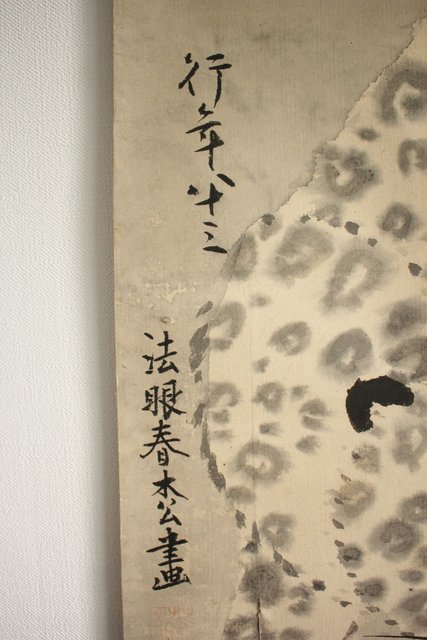 行年八十三
法眼春木公筆画